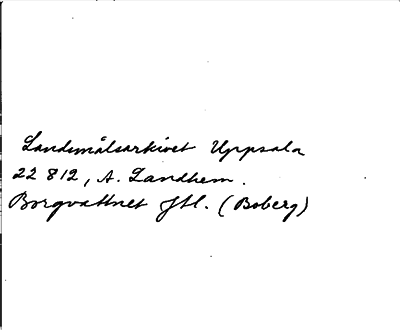 Landsmålsarkivet Uppsala
22 812, A. Landhem.
Borgvattnet Jtl. (Boberg)